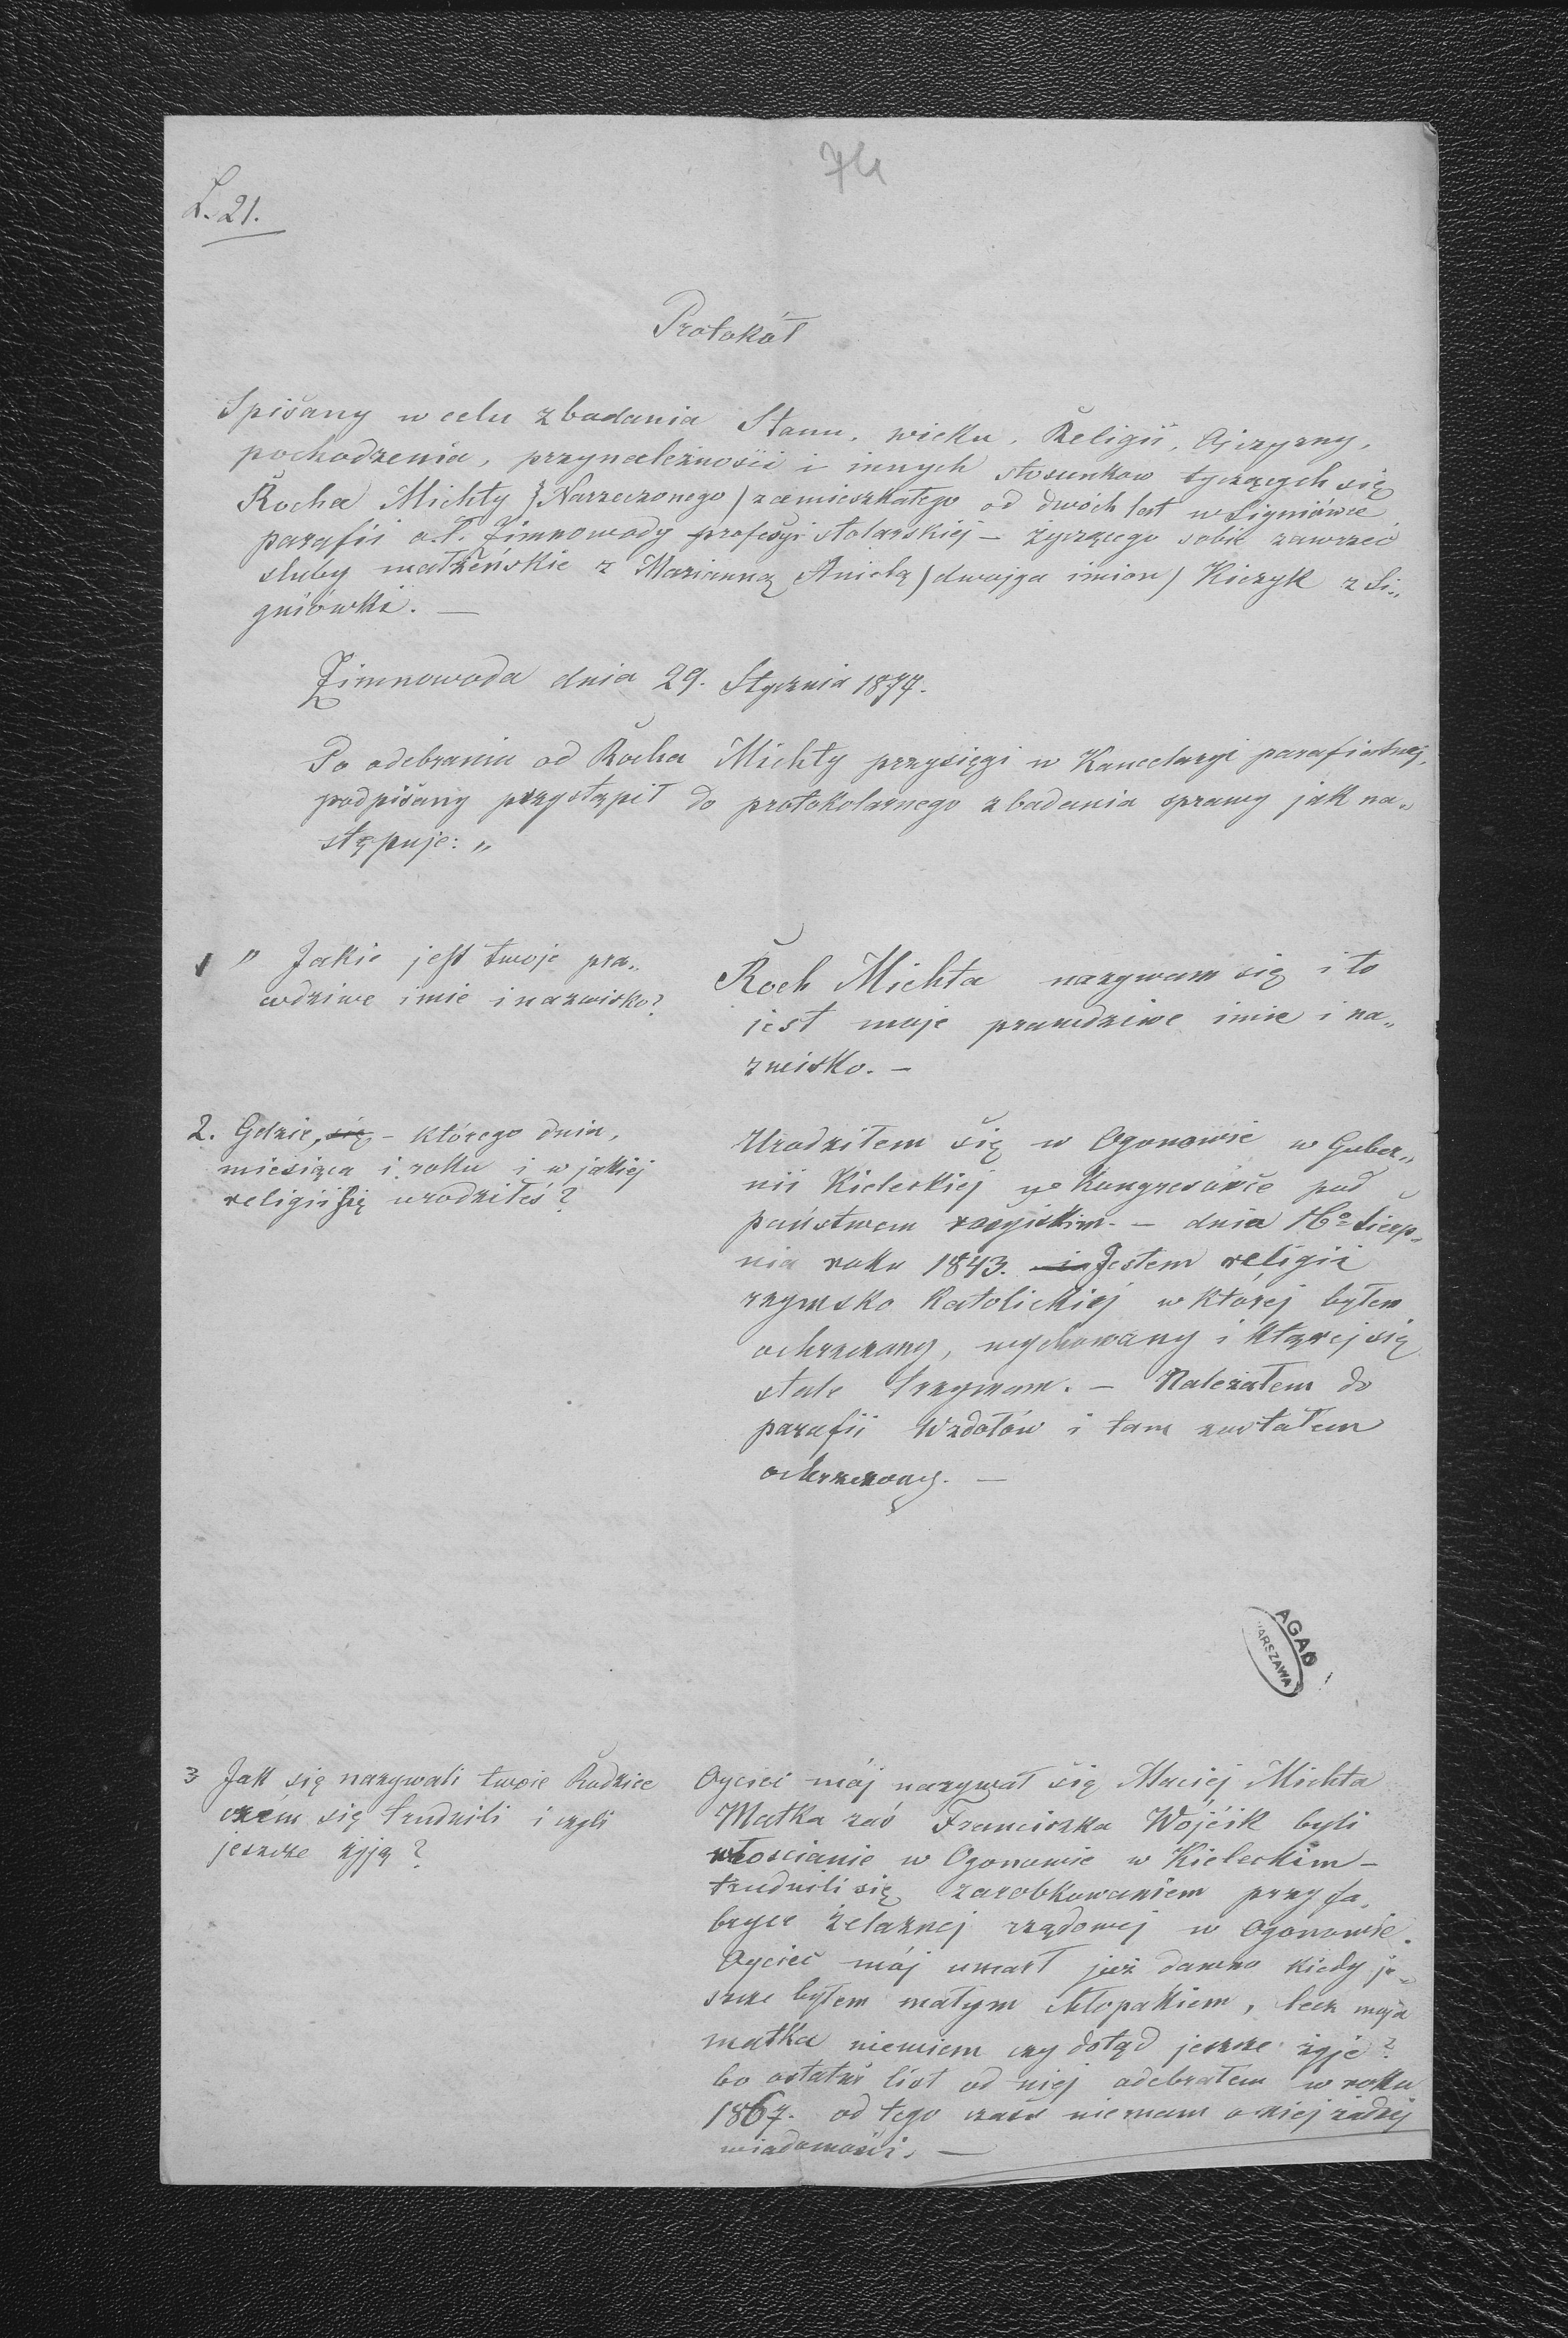 74
L. 21.
Protokół
Spisany w celu zbadania Stanu, wieku, Religii, Ojczyzny,
pochodzenia, przynależności i innych stosunkow tyczących się
Rocha Michty /Narzeczonego/ zamieszkałego od dwóch lat w Signiówce
parafii o.ł. Zimnowody profesyi stolarskiej – życzącego sobie zawrzeć
sluby małżeńskie z Marianną Anielą /dwojga imion/ Kiczyk z Si„
gniówki. —
Zimnowoda dnia 29. Stycznia 1874.
Po odebraniu od Rocha Michty przysięgi w Kancelaryi parafialnej,
podpisany przystąpił do protokolarnego zbadania sprawy jak na„
stępuje: „
1 " Jakie jest twoje pra„
wdziwe imie i nazwisko?
Roch Michta nazywam się i to
jest moje prawdziwe imie i na„
zwisko. –
2. Gdzie, się – którego dnia,
miesiąca i roku i w jakiej
religii się urodziłeś?
Urodziłem się w Ogonowie w Guber„
nii Kieleckiej w Kongresówce pod
państwem rosyiskim. – dnia 16º Sierp„
nia roku 1843. Jestem religii
rzymsko Katolickiej w której byłem
ochrzczony, wychowany i której się
stale trzymam. – Należałem do
parafii Wzdołów i tam zostałem
ochrzczony. —
AGAD
WARSZAWA
3 Jak się nazywali twoie Rodzice
czém się trudnili i czyli
jeszcze żyją?
Oyciec mój nazywał się Maciej Michta
Matka zaś Franciszka Wójcik byli
włoscianie w Ogonowie w Kieleckim –
trudnili się zarobkowaniem przy fa„
bryce żelaznej rządowej w Ogonowie.
Oyciec mój umarł już dawno kiedy je„
szcze byłem małym chłopakiem, lecz moja
matka niewiem czy dotąd jeszcze żyje?
bo ostatni list od niej odebrałem w roku
1867. od tego czasu niemam o niej żadnej
wiadomości. —